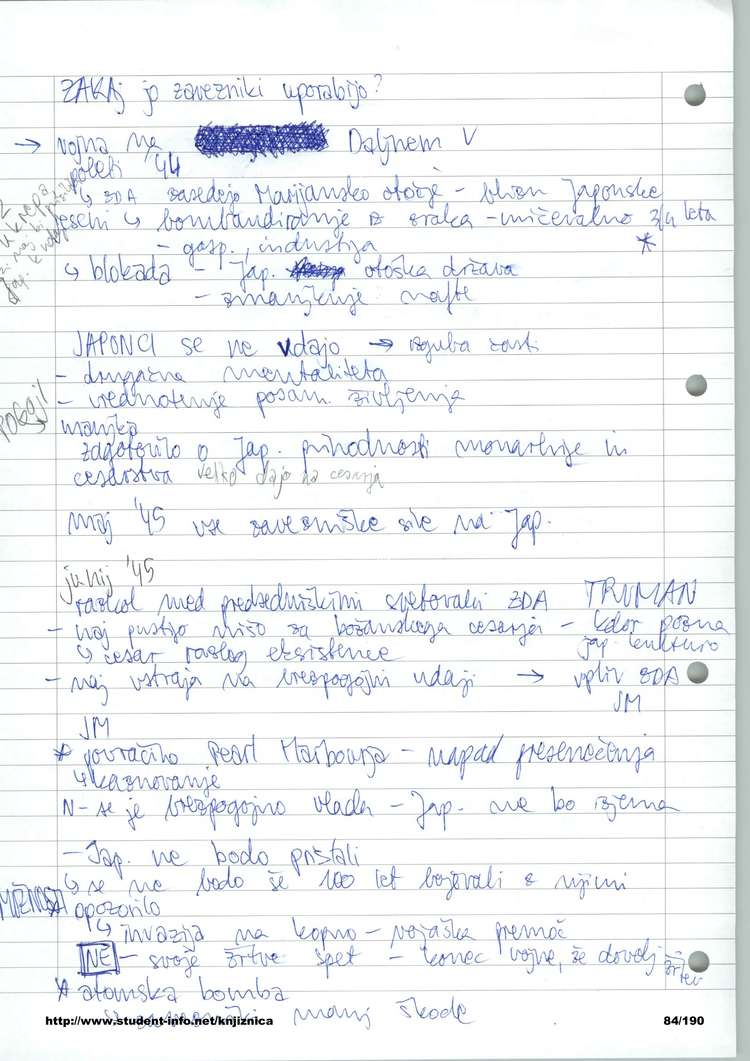 ZAKAJ jo zavezniki uporabijo?
→ vojna na Daljnem V
poleti '44
↳ ZDA zasedejo Marijansko otočje - blizu Japonske
↳ bombandiranje iz zraka - uničevalno 3/4 leta
- gosp., industrija *
↳ blokada - Jap. otoška država
- zmanjkuje nafte
JAPONCI se ne vdajo → izguba časti
- drugačna mentaliteta
- vrednotenje posam. življenja
POGOJI
manjka
zagotovilo o Jap. prihodnosti monarhije in
cesarstva veliko dajo na cesarja
maj '45 vse zavezniške sile na Jap.
junij '45
razkol med predsedniškimi svetovalci ZDA TRUMAN
- naj pustijo nišo za božanskega cesarja - kdor pozna
↳ cesar razlog eksistence jap. kulturo
- naj vstraja na brezpogojni vdaji → vpliv ZDA
JM
JM
* povračilo Pearl Harbourja - napad presenečenja
↳ kaznovanje
N - se je brezpogojno vdala - Jap. ne bo izjema
- Jap. ne bodo pristali
↳ se ne bodo še 100 let bojevali z njimi
MOŽNOSTI
* opozorilo
↳ invazija na kopno - vojaška premoč
NE - svoje žrtve spet - konec vojne, še dovolj žrtev
* atomska bomba
manj škode
http://www.student-info.net/knjiznica 84/190